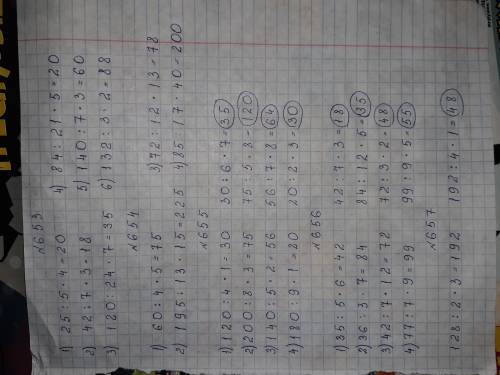 №653
1) 25 : 5 · 4 = 20 4) 84 : 21 · 5 = 20
2) 42 : 7 · 3 = 18 5) 140 : 7 · 3 = 60
3) 120 : 24 · 7 = 35 6) 132 : 3 · 2 = 88
№654
1) 60 : 4 · 5 = 75 3) 72 : 12 · 13 = 78
2) 195 : 13 · 15 = 225 4) 85 : 17 · 40 = 200
№655
1) 120 : 4 · 1 = 30 30 : 6 · 7 = 35
2) 200 : 8 · 3 = 75 75 : 5 · 8 = 120
3) 140 : 5 · 2 = 56 56 : 7 · 8 = 64
4) 180 : 9 · 1 = 20 20 : 2 · 3 = 30
№656
1) 35 : 5 · 6 = 42 42 : 7 · 3 = 18
2) 36 : 3 · 7 = 84 84 : 12 · 5 = 35
3) 42 : 7 · 12 = 72 72 : 3 · 2 = 48
4) 77 : 7 · 9 = 99 99 : 9 · 5 = 55
№657
128 : 2 · 3 = 192 192 : 4 · 1 = 48